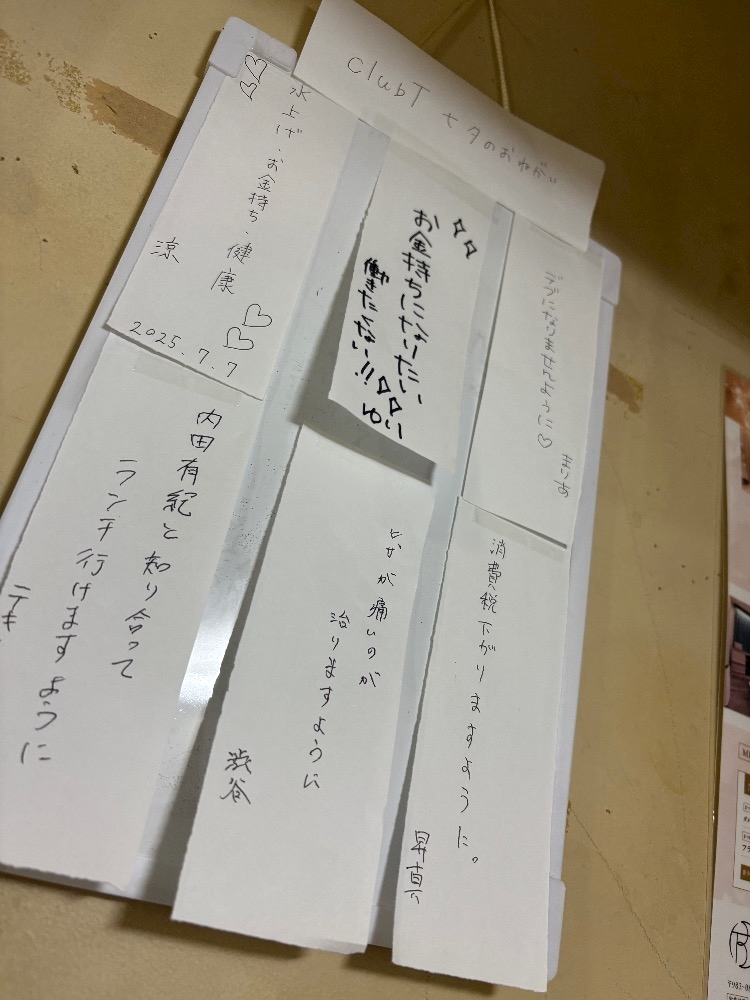 clubT 七夕のおねがい
水上げ・お金持ち・健康
涼
2025.7.7
お金持ちになりたい
働きたくない!!
ゆい
デブになりませんように♡
まりあ
内田有紀と知り合って
ランチ行けますように
テキ
が痛いのが
治りますように
渋谷
消費税下がりますように。
昇真